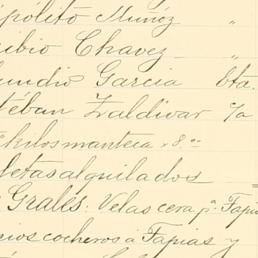 ipólito Muñoz "
ibio Chavez "
undio Garcia Cta.
téban Zaldivar c/a
kilos manteca a 8.00
letas alquiladas
Grales. Velas cera pª Tapia
rios cocheros á Tapias y